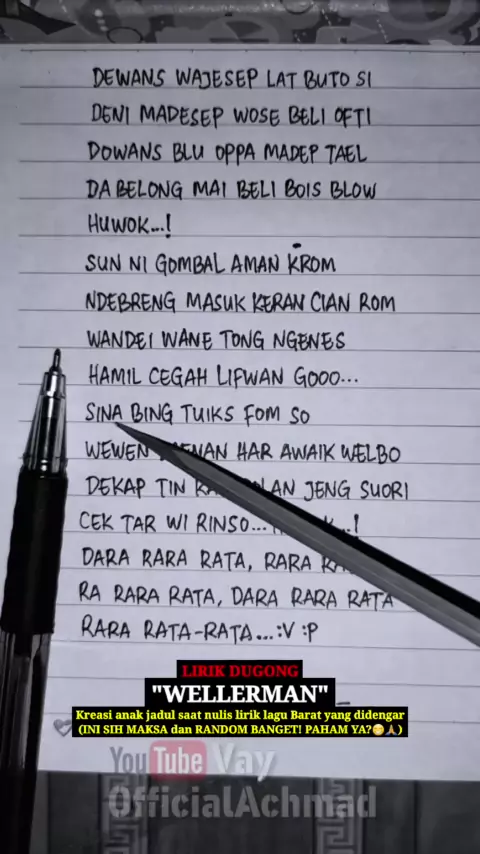 DEWANS WAJESEP LAT BUTO SI
DENI MADESEP WOSE BELI OFTI
DOWANS BLU OPPA MADEP TAEL
DA BELONG MAI BELI BOIS BLOW
HUWOK...!
SUN NI GOMBAL AMAN KROM
NDEBRENG MASUK KERAN CIAN ROM
WANDEI WANE TONG NGENES
HAMIL CEGAH LIFWAN GOOO...
SINA BING TUIKS FOM SO
WEWEN HAR AWAIK WELBO
DEKAP TIN JENG SUORI
CEK TAR WI RINSO... ...!
DARA RARA RATA, RARA
RA RARA RATA, DARA RARA RATA
RARA RATA-RATA...:V :P
LIRIK DUGONG
"WELLERMAN"
Kreasi anak jadul saat nulis lirik lagu Barat yang didengar
(INI SIH MAKSA dan RANDOM BANGET! PAHAM YA?😁🙏)
YouTube Vay
OfficialAchmad